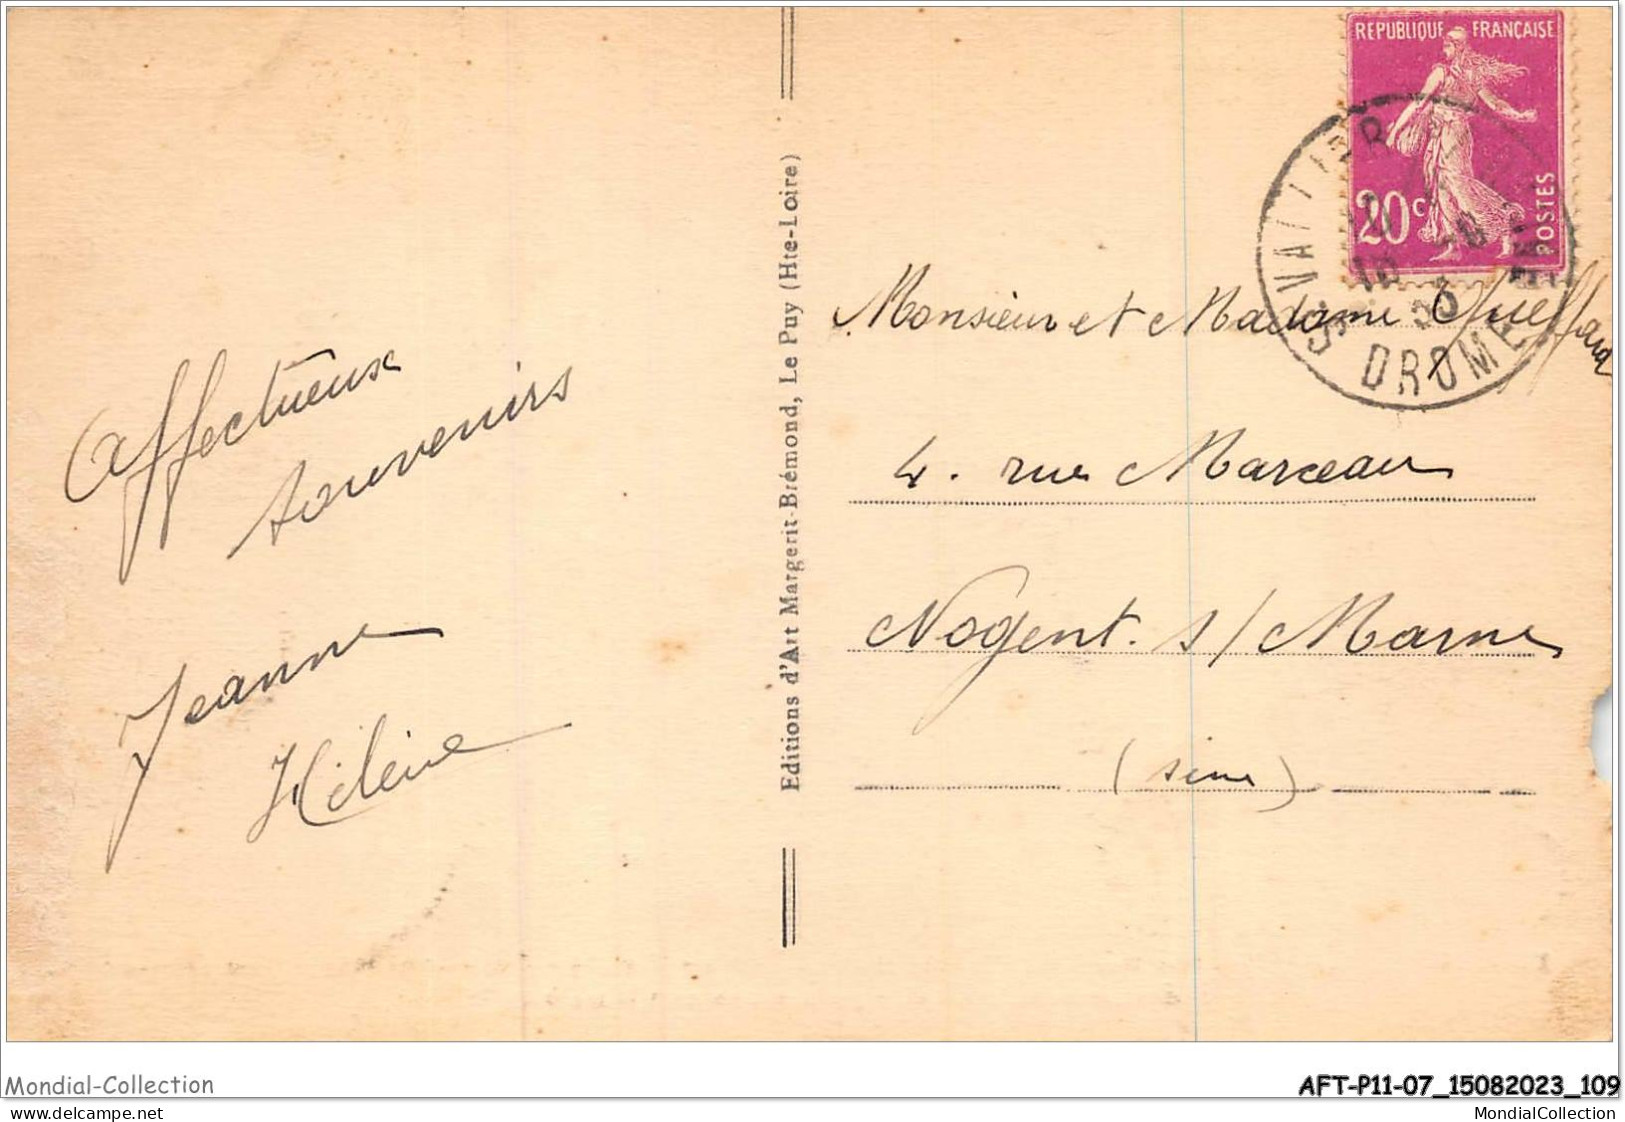 REPUBLIQUE FRANÇAISE
20c
POSTES
St VALLIER
DROME
Affectueux
souvenirs
Jeanne
Hélène
Editions d'Art Margerit-Brémond, Le Puy (Hte-Loire)
Monsieur et Madame
4. rue Marceau
Nogent. s/ Marne
(seine)
Mondial-Collection
delcampe.net
AFT-P11-07_15082023_109
MondialCollection